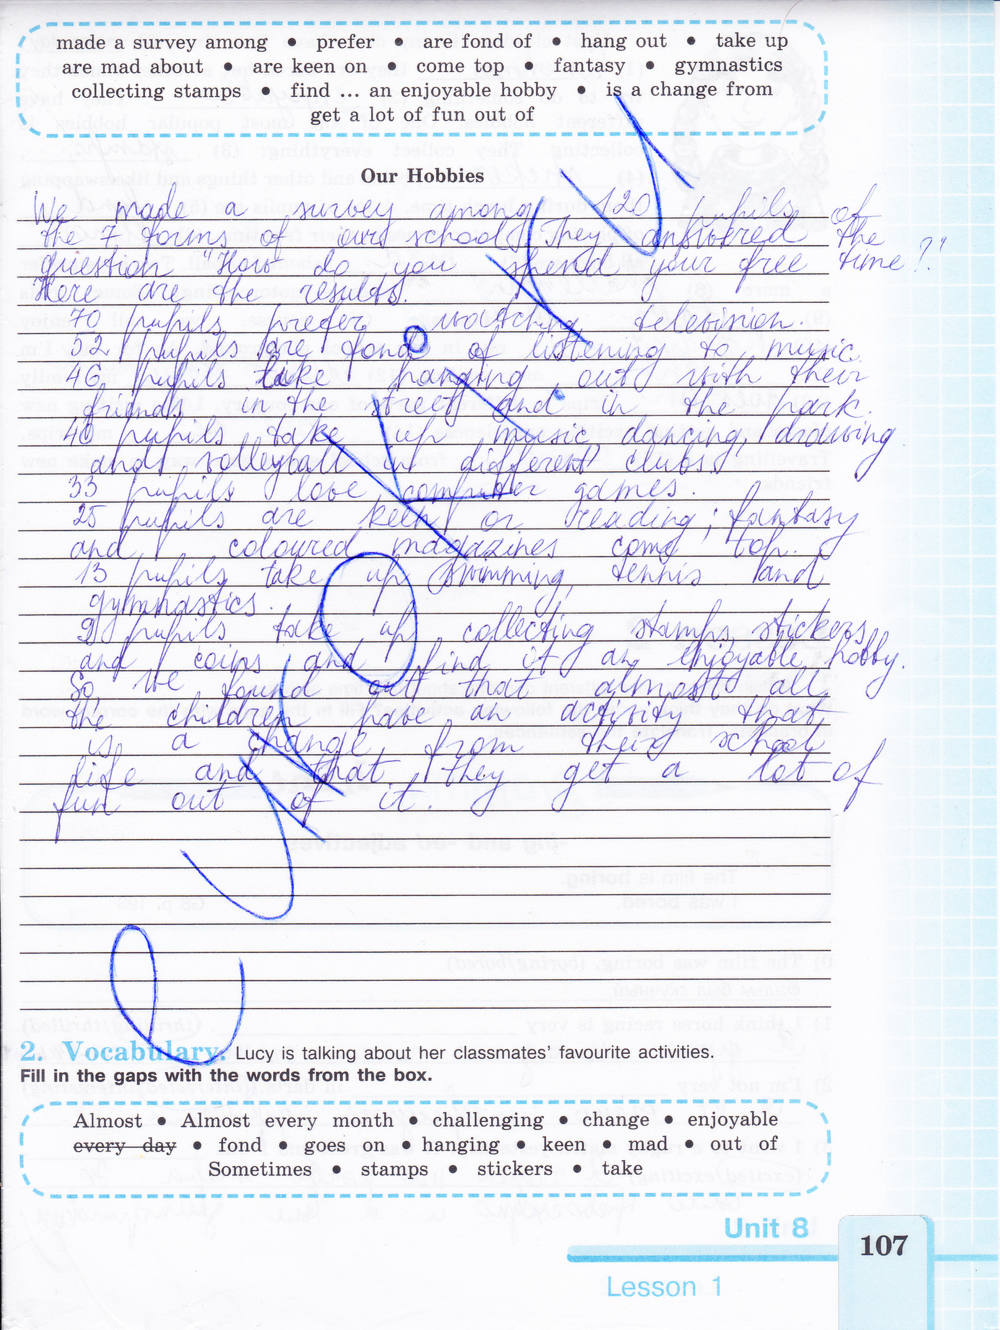 made a survey among • prefer • are fond of • hang out • take up
are mad about • are keen on • come top • fantasy • gymnastics
collecting stamps • find ... an enjoyable hobby • is a change from
get a lot of fun out of
Our Hobbies
We made a survey among 120 pupils of
the 7 forms of our school. They answered the
question "How do you spend your free time?"
Here are the results.
70 pupils prefer watching television.
52 pupils are fond of listening to music.
46 pupils take hanging out with their
friends in the street and in the park.
40 pupils take up music, dancing, drawing
and volleyball in different clubs.
33 pupils love computer games.
25 pupils are keen on reading; fantasy
and coloured magazines come top.
13 pupils take up swimming, tennis and
gymnastics.
9 pupils take up collecting stamps, stickers
and coins and find it an enjoyable hobby.
So we found out that almost all
the children have an activity that
is a change from their school
life and that they get a lot of
fun out of it.
2. Vocabulary. Lucy is talking about her classmates' favourite activities.
Fill in the gaps with the words from the box.
Almost • Almost every month • challenging • change • enjoyable
every day • fond • goes on • hanging • keen • mad • out of
Sometimes • stamps • stickers • take
Unit 8
107
Lesson 1